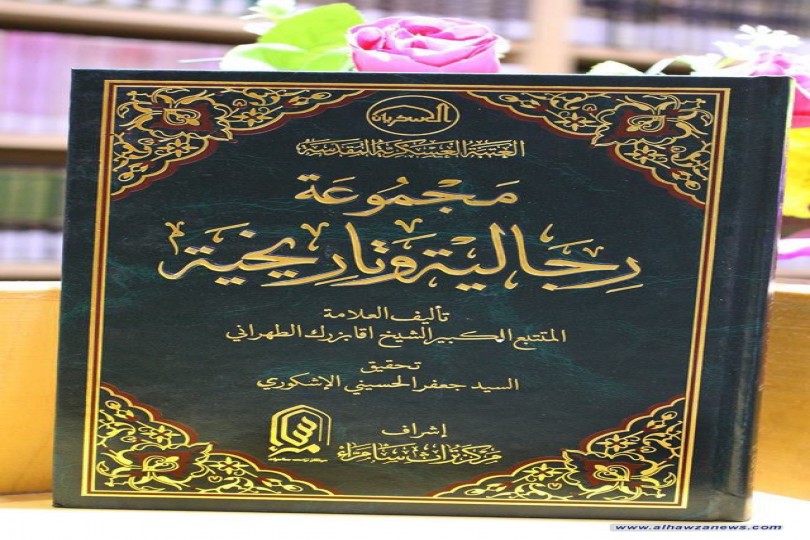 العسكريان
العتبة العسكرية المقدسة
مَجْمُوعَة
رِجَالية وَتَارِيخية
تأليف العلامة
المتتبع الكبير الشيخ اقا بزرك الطهراني
تحقيق
السيد جعفر الحسيني الإشكوري
إشراف
مركز تراث سامراء
www.alhawzanews.com